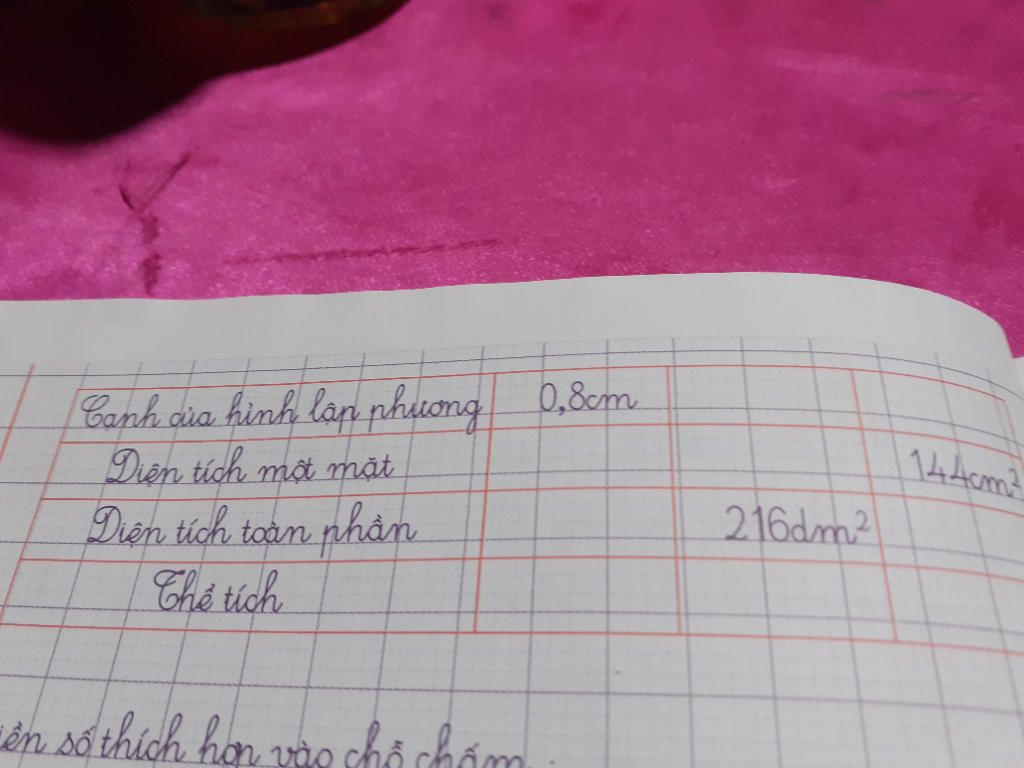 Cạnh của hình lập phương 0,8cm
Diện tích một mặt 144cm²
Diện tích toàn phần 216dm²
Thể tích
số thích hợp vào chỗ chấm.